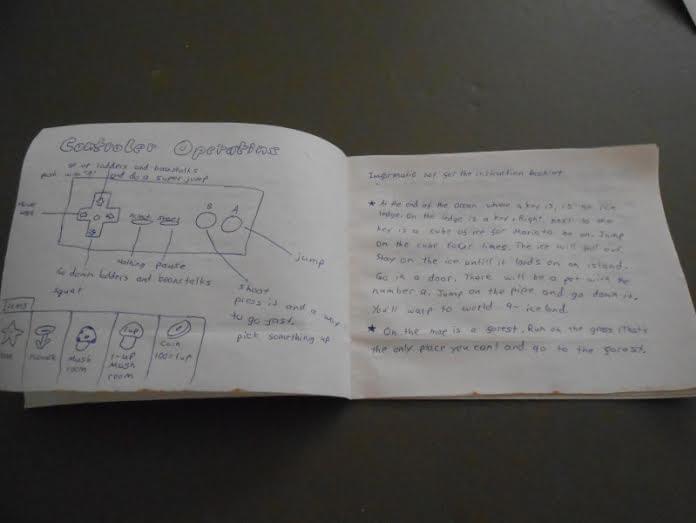 Controler Operatins
go up ladders and beanstalks
push with "A" and do a super jump
B
A
nothing pause
jump
Go down ladders and beanstalks
squat
shoot
press is and a way
to go fast.
pick something up
Items
Star
Mush
room
1up
1-up
Mush
room
Coin
100=1up
Informatio not for the instruction booklet
★ At the end of the ocean where a key is, is an ice
ledge. On the ledge is a key. Right next to the
key is a cube of ice for Mario to be on. Jump
on the cube four times. The ice will fall out.
Stay on the ice untill it lands on an island.
Go in a door. There will be a pot with the
number 9. Jump on the pipe and go down it.
You'll warp to world 9- ice land.
★ On the map is a forest. Run on the grass (thats
the only place you can) and go to the forest.